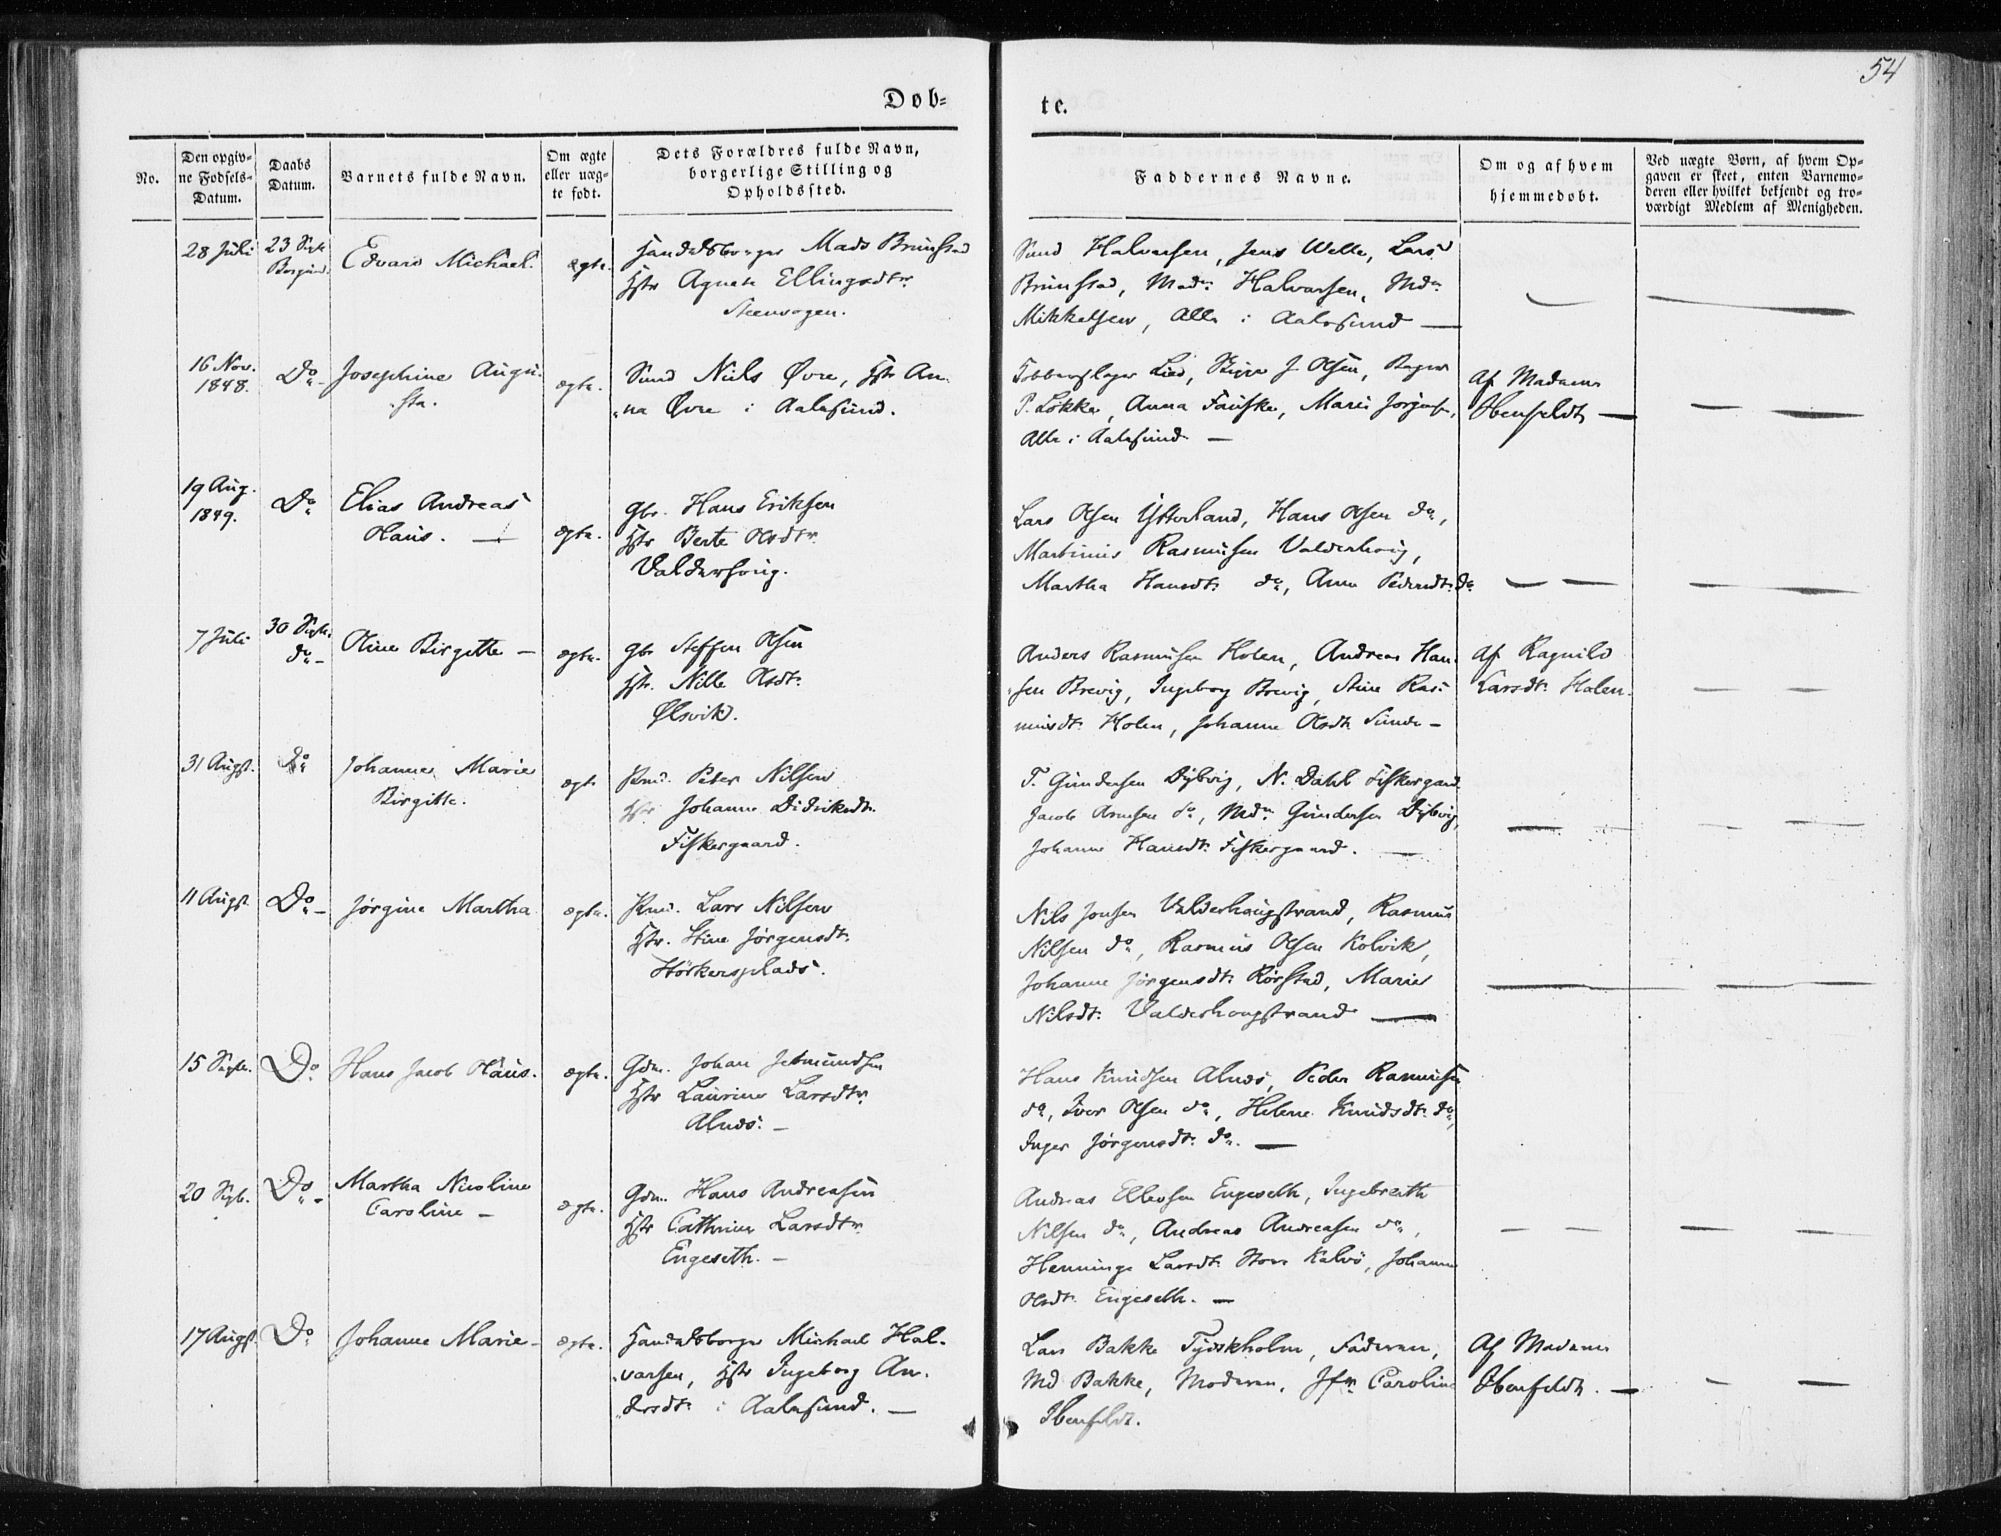 54
Døb-
te.
No.
Den opgiv-
ne Fødsels-
Datum.
Daabs
Datum.
Barnets fulde Navn.
Om ægte
eller uæg-
te født.
Dets Forældres fulde Navn,
borgerlige Stilling og
Opholdssted.
Faddernes Navne.
Om og af hvem
hjemmedøbt.
Ved uægte Børn, af hvem Op-
gaven er skeet, enten Barnemo-
deren eller hvilket bekjendt og tro-
værdigt Medlem af Menigheden.
28 Juli
23 Sept.
Borgund
Edvard Michael.
ægte.
Handelsborger Mads Brunstad
Hstr Agnete Ellingsdtr.
Steenvogen.
Halvarsen, Jens Welle, Lars
Brunstad, Mad. Halvarsen, Md.
Mikkelsen, Alle i Aalesund —
16 Nov.
1848.
Do
Josephine Augu-
sta.
ægte.
Niels Øvre, Hstr An-
na Øvre i Aalesund.
Lied, J. Olsen,
P. Løkke, Anna Fauske,
Alle i Aalesund —
Af Madame
Ibenfeldt —
19 Aug.
1849.
Do
Elias Andreas
Olaus. —
ægte.
Gbr. Hans Eriksen
Hstr Berte Olsdtr.
Valderhoug.
Lars Olsen Ytterland, Hans Olsen do,
Martinus Rasmusen Valderhoug,
Martha Hansdt. do, Anne Pedersdt. do
7 Juli
30 Sept.
do —
Oline Birgitte —
ægte.
Gbr Steffen Olsen
Hstr. Nille Olsdt.
Ølsvik.
Anders Rasmusen Holen, Andreas Han-
sen Brevig, Ingeborg Brevig, Stine Ras-
musdt. Holen, Johanne Olsdt. Sunde —
Af Ragnild
Larsdt. Holen.
31 Augst.
Do
Johanne Marie
Birgitte.
ægte
Peter Nilsen
Hstr Johanne Didriksdt.
Fiskergaard.
T. Gundersen Dybvig, N. Dahl Fiskergaard
Jacob Arnesen do, Md. Gundersen Dybvig,
Johanne Hansdt. Fiskergaard. —
11 Augst.
Do —
Jørgine Martha
ægte.
Lars Nilsen
Hstr. Stine Jørgensdt.
Størkersplads.
Nils Jonsen Valderhougstrand, Rasmus
Nilsen do, Rasmus Olsen Kolvik,
Johanne Jørgensdt. Rørstad, Marie
Nilsdt. Valderhougstrand —
15 Septr.
Do
Hans Jacob Olaus.
ægte.
Gdm. Johan Jetmundsen
Hstr Laurine Larsdtr.
Alnæs. —
Hans Knudsen Alnæs, Peder Rasmusen
do, Iver Olsen do, Helene Knudsdt. do,
Inger Jørgensdt. do. —
20 Sept.
Do —
Martha Nicoline
Caroline —
ægte.
Gdm. Hans Andreasen
Hstr Cathrine Larsdtr.
Engeseth. —
Andreas Ellevsen Engeseth, Ingebreith
Nilsen do, Andreas Andreasen do,
Henninge Larsdt. Store Kalvø, Johanne
Olsdt. Engeseth. —
17 Augst.
Do
Johanne Marie —
ægte.
Handelsborger Michael Hal-
varsen, Hstr Ingeborg An-
dersdt. i Aalesund. —
Lars Bakke Tydskholm, Faderen,
Md Bakke, Moderen, Jfr. Caroline
Ibenfeldt.
Af Madame
Ibenfeldt. —